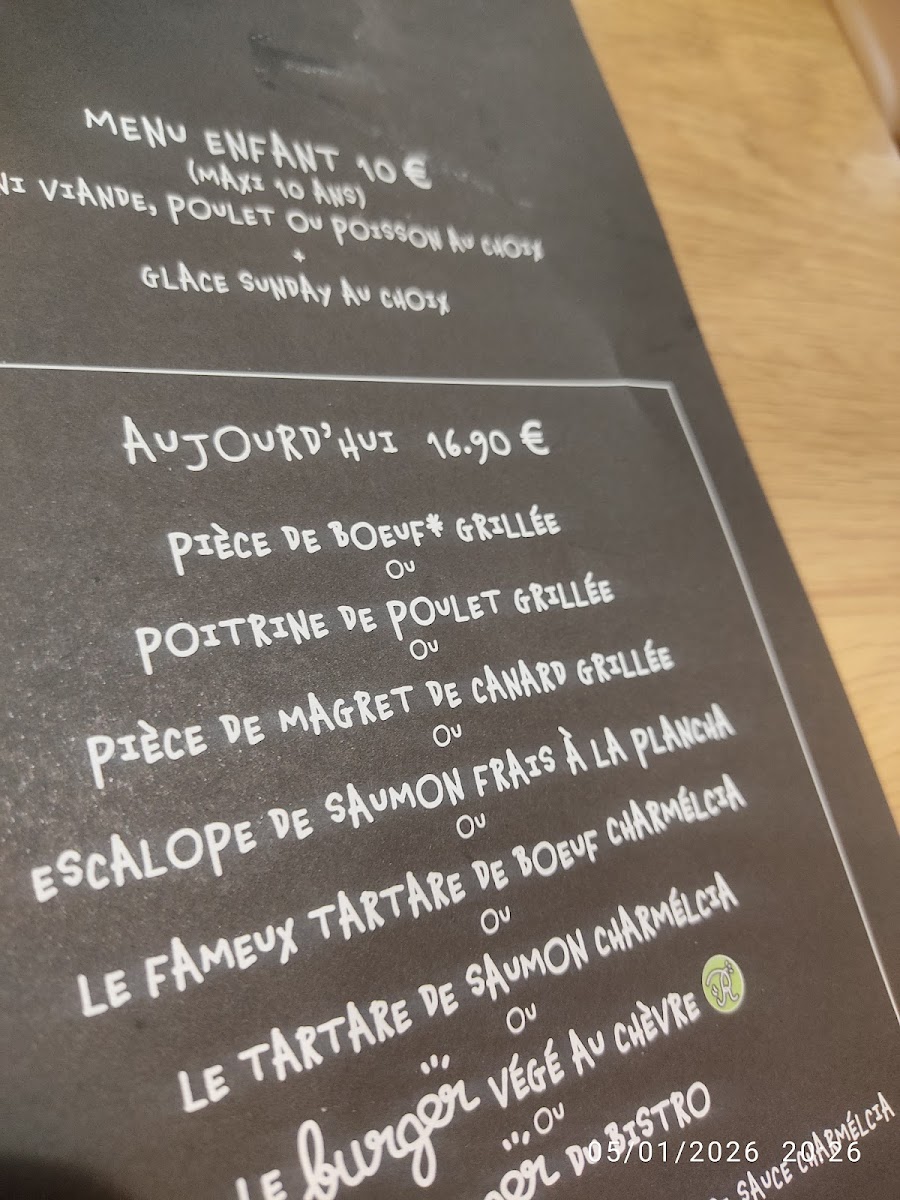 MENU ENFANT 10 €
(MAXI 10 ANS)
VIANDE, POULET OU POISSON AU CHOIX
+
GLACE SUNDAY AU CHOIX
AUJOURD'HUI 16.90 €
PIÈCE DE BOEUF* GRILLÉE
OU
POITRINE DE POULET GRILLÉE
OU
PIÈCE DE MAGRET DE CANARD GRILLÉE
OU
ESCALOPE DE SAUMON FRAIS À LA PLANCHA
OU
LE FAMEUX TARTARE DE BOEUF CHARMÉLCIA
OU
LE TARTARE DE SAUMON CHARMÉLCIA
OU
LE burger VÉGÉ AU CHÈVRE R
OU
DU BISTRO
SAUCE CHARMÉLCIA
05/01/2026 20:26